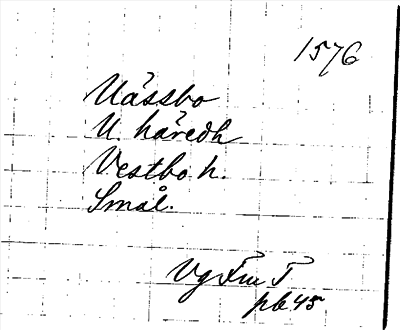 1576
Uässbo
U. häredh
Vestbo h.
Smål.
Vg Fru T
pb 45